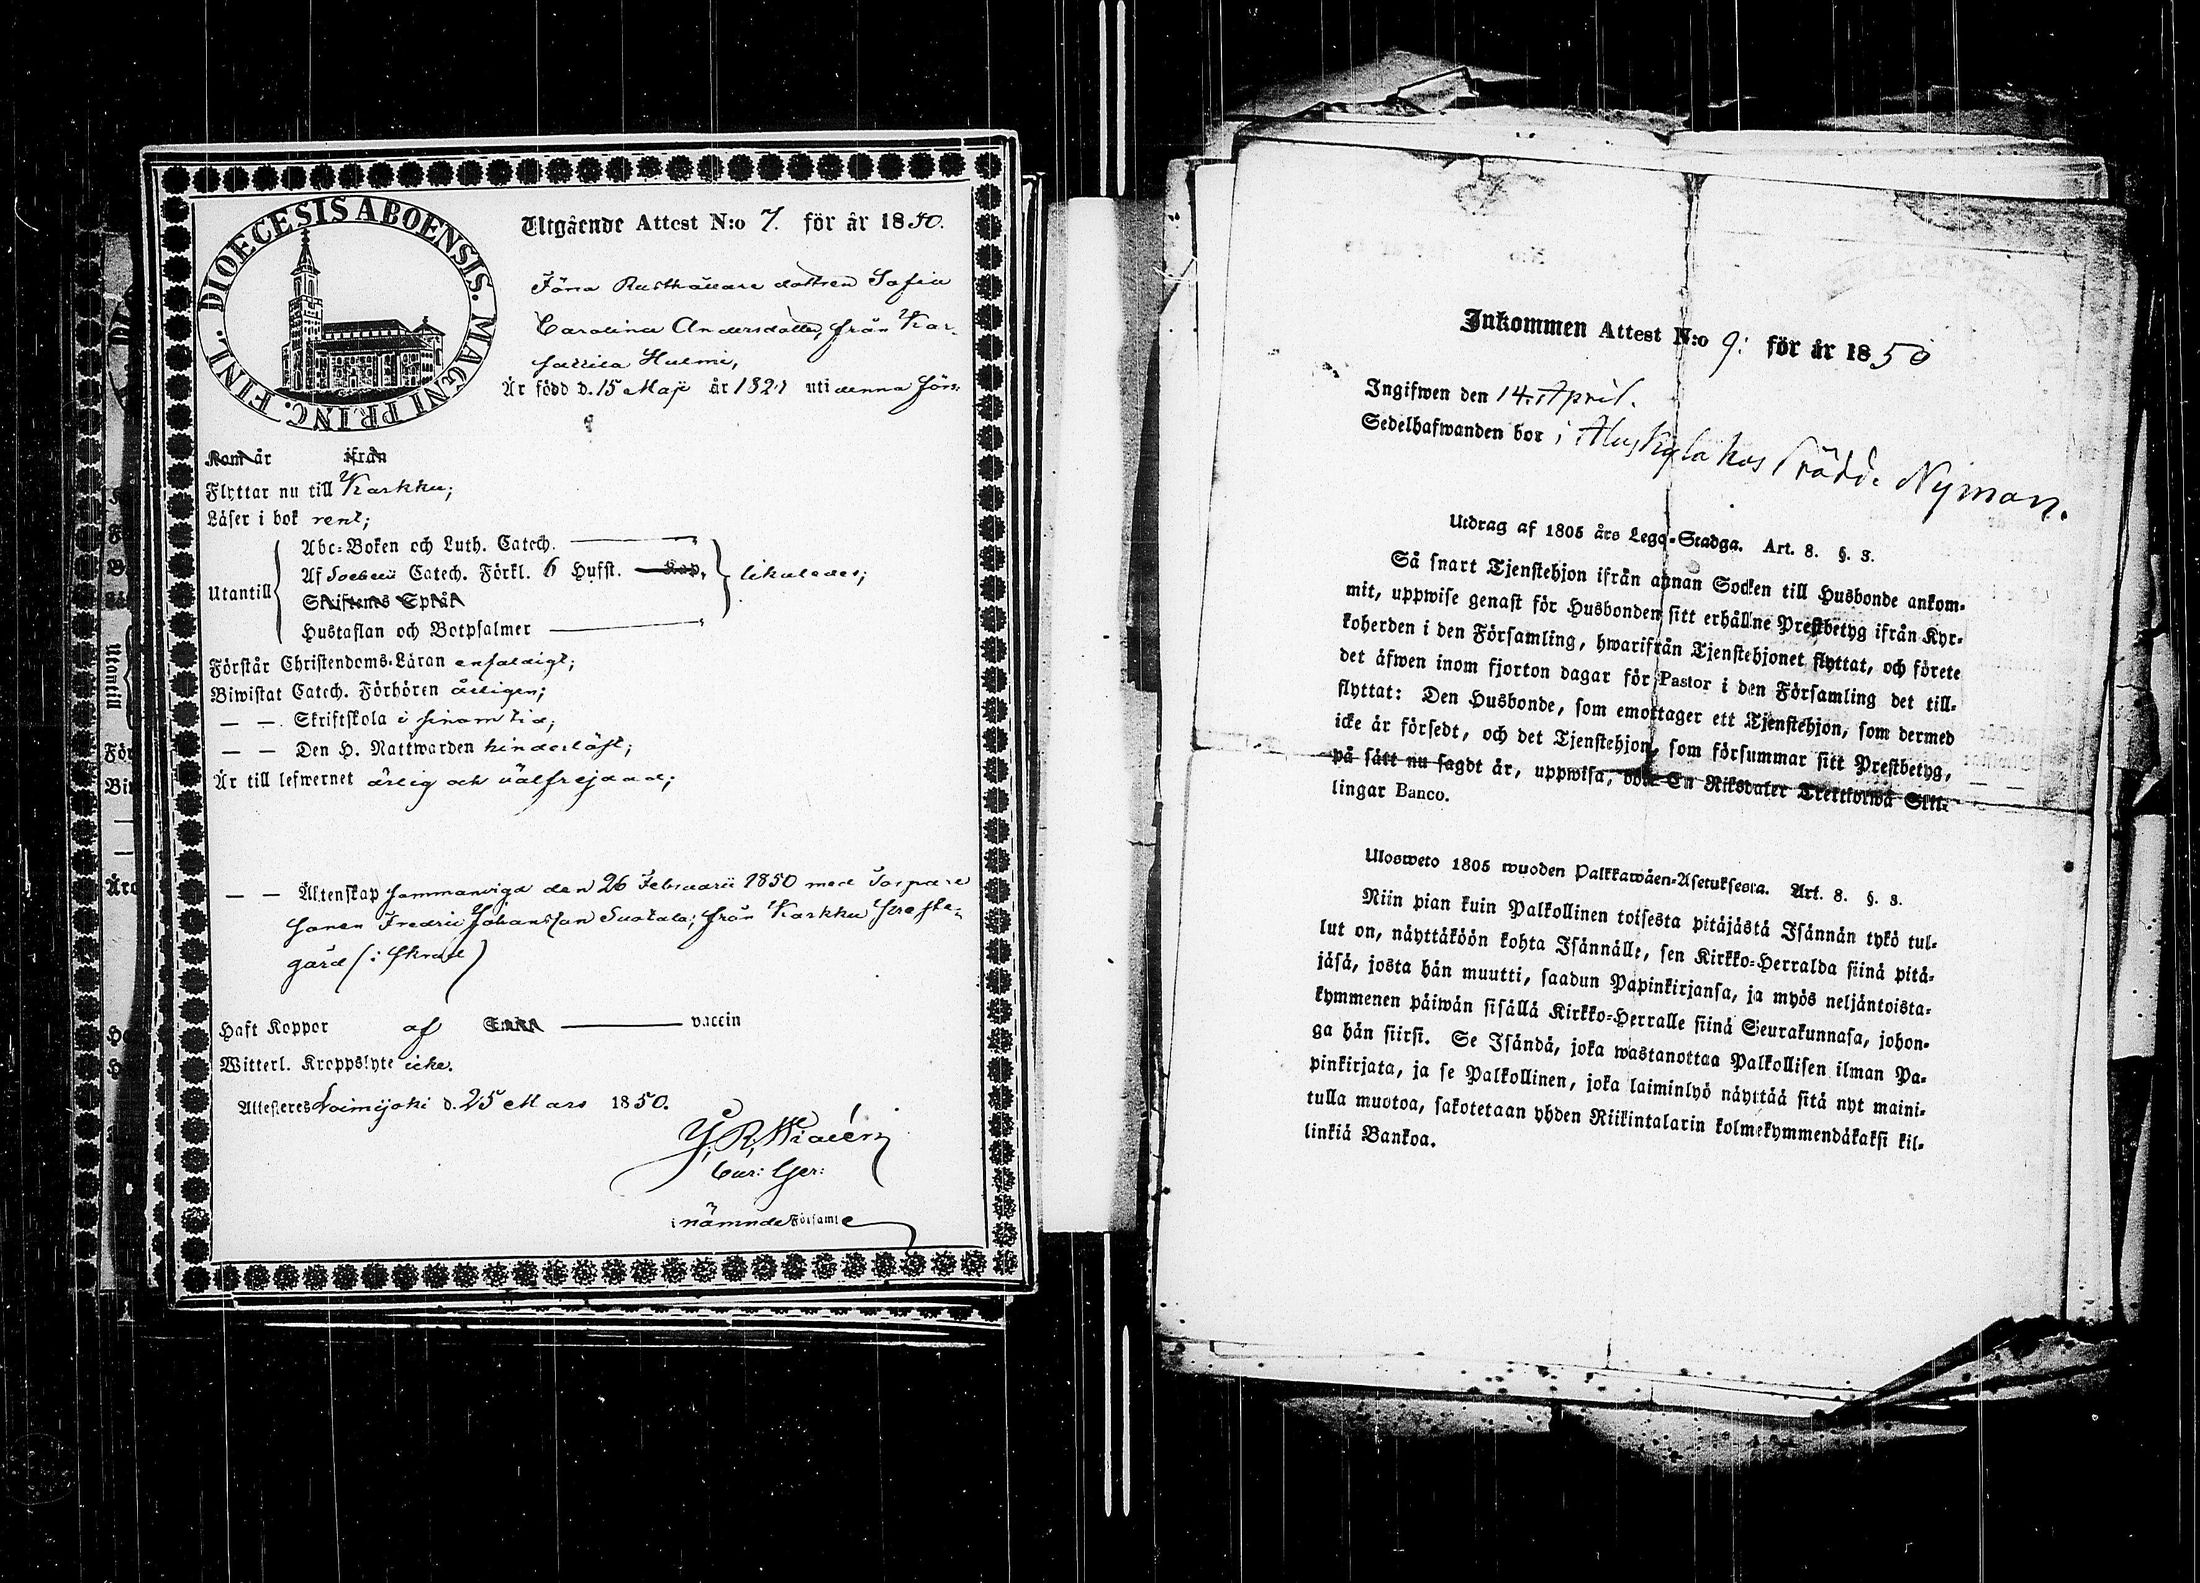 DIOECESIS ABOENSIS. MAGNI PRINC. FINL.
Utgående Attest N:o 7. för år 1850.
Förra Rusthållare dottren Sofia
Carolina Andersdotter, från Kar-
Hulmi,
Är född d. 15 Maji år 1821 uti denna förs:
Kom år ifrån
Flyttar nu till Karkku;
Läser i bok rent;
Utantill
Abc-Boken och Luth. Catech.
Af Soebeii Catech. Förkl. 6 Hufst. Kap. likaledes;
Skriftenes Språk
Hustaflan och Botpsalmer
Förstår Christendoms-Läran enfaldigt;
Biwistat Catech. Förhören årligen;
— — Skriftskola i sinom tid;
— — Den H. Nattwarden hinderlöst;
Är till lefwernet ärlig och välfrejdad;
— — Äktenskap sammanvigd den 26 Februarii 1850 med Torpare
sonen Fredric Johansson Suotala; från Karkku Preste-
gård (: Skrad)
Haft Koppor af Enka vaccin
Witterl. Kroppslyte icke.
Attesteres Loimijoki d. 25 Mars 1850.
Cur: Ger:
i nämnde Församl
Inkommen Attest N:o 9: för år 1850
Ingifwen den 14. April.
Sedelhafwanden bor i kyla hos Nyman.
Utdrag af 1805 års Lego-Stadga. Art. 8. §. 3.
Så snart Tjenstehjon ifrån annan Socken till Husbonde ankom-
mit, uppwise genast för Husbonden sitt erhållne Prestbetyg ifrån Kyr-
koherden i den Församling, hwarifrån Tjenstehjonet flyttat, och förete
det äfwen inom fjorton dagar för Pastor i den Församling det till-
flyttat: Den Husbonde, som emottager ett Tjenstehjon, som dermed
icke är försedt, och det Tjenstehjon, som försummar sitt Prestbetyg,
på sätt nu sagdt är, uppwisa, böte En Riksdaler Trettiotwå Skil-
lingar Banco.
Ulosweto 1805 wuoden Palkkawäen-Asetuksesta. Art. 8. §. 3.
Niin pian kuin Palkollinen toisesta pitäjästä Isännän tykö tul-
lut on, näyttäköön kohta Isännälle, sen Kirkko-Herralda siinä pitä-
jäsä, josta hän muutti, saadun Papinkirjansa, ja myös neljäntoista-
kymmenen päiwän sisällä Kirkko-Herralle siinä Seurakunnasa, johon-
ga hän siirsi. Se Isändä, joka wastanottaa Palkollisen ilman Pa-
pinkirjata, ja se Palkollinen, joka laiminlyö näyttää sitä nyt maini-
tulla muotoa, sakotetaan yhden Riikintalarin kolmekymmendäkaksi kil-
linkiä Bankoa.